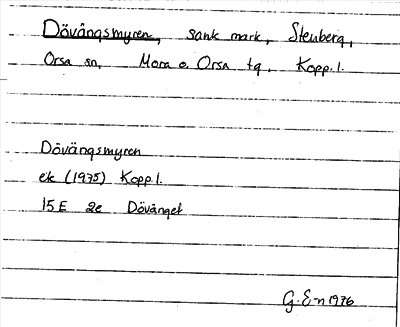 Dövängsmyren, sank mark, Stenberg,
Orsa sn, Mora o. Orsa tg, Kopp. l.
Dövängsmyren
ek (1975) Kopp. l.
15E 2e Dövänget
G. E-n 1976